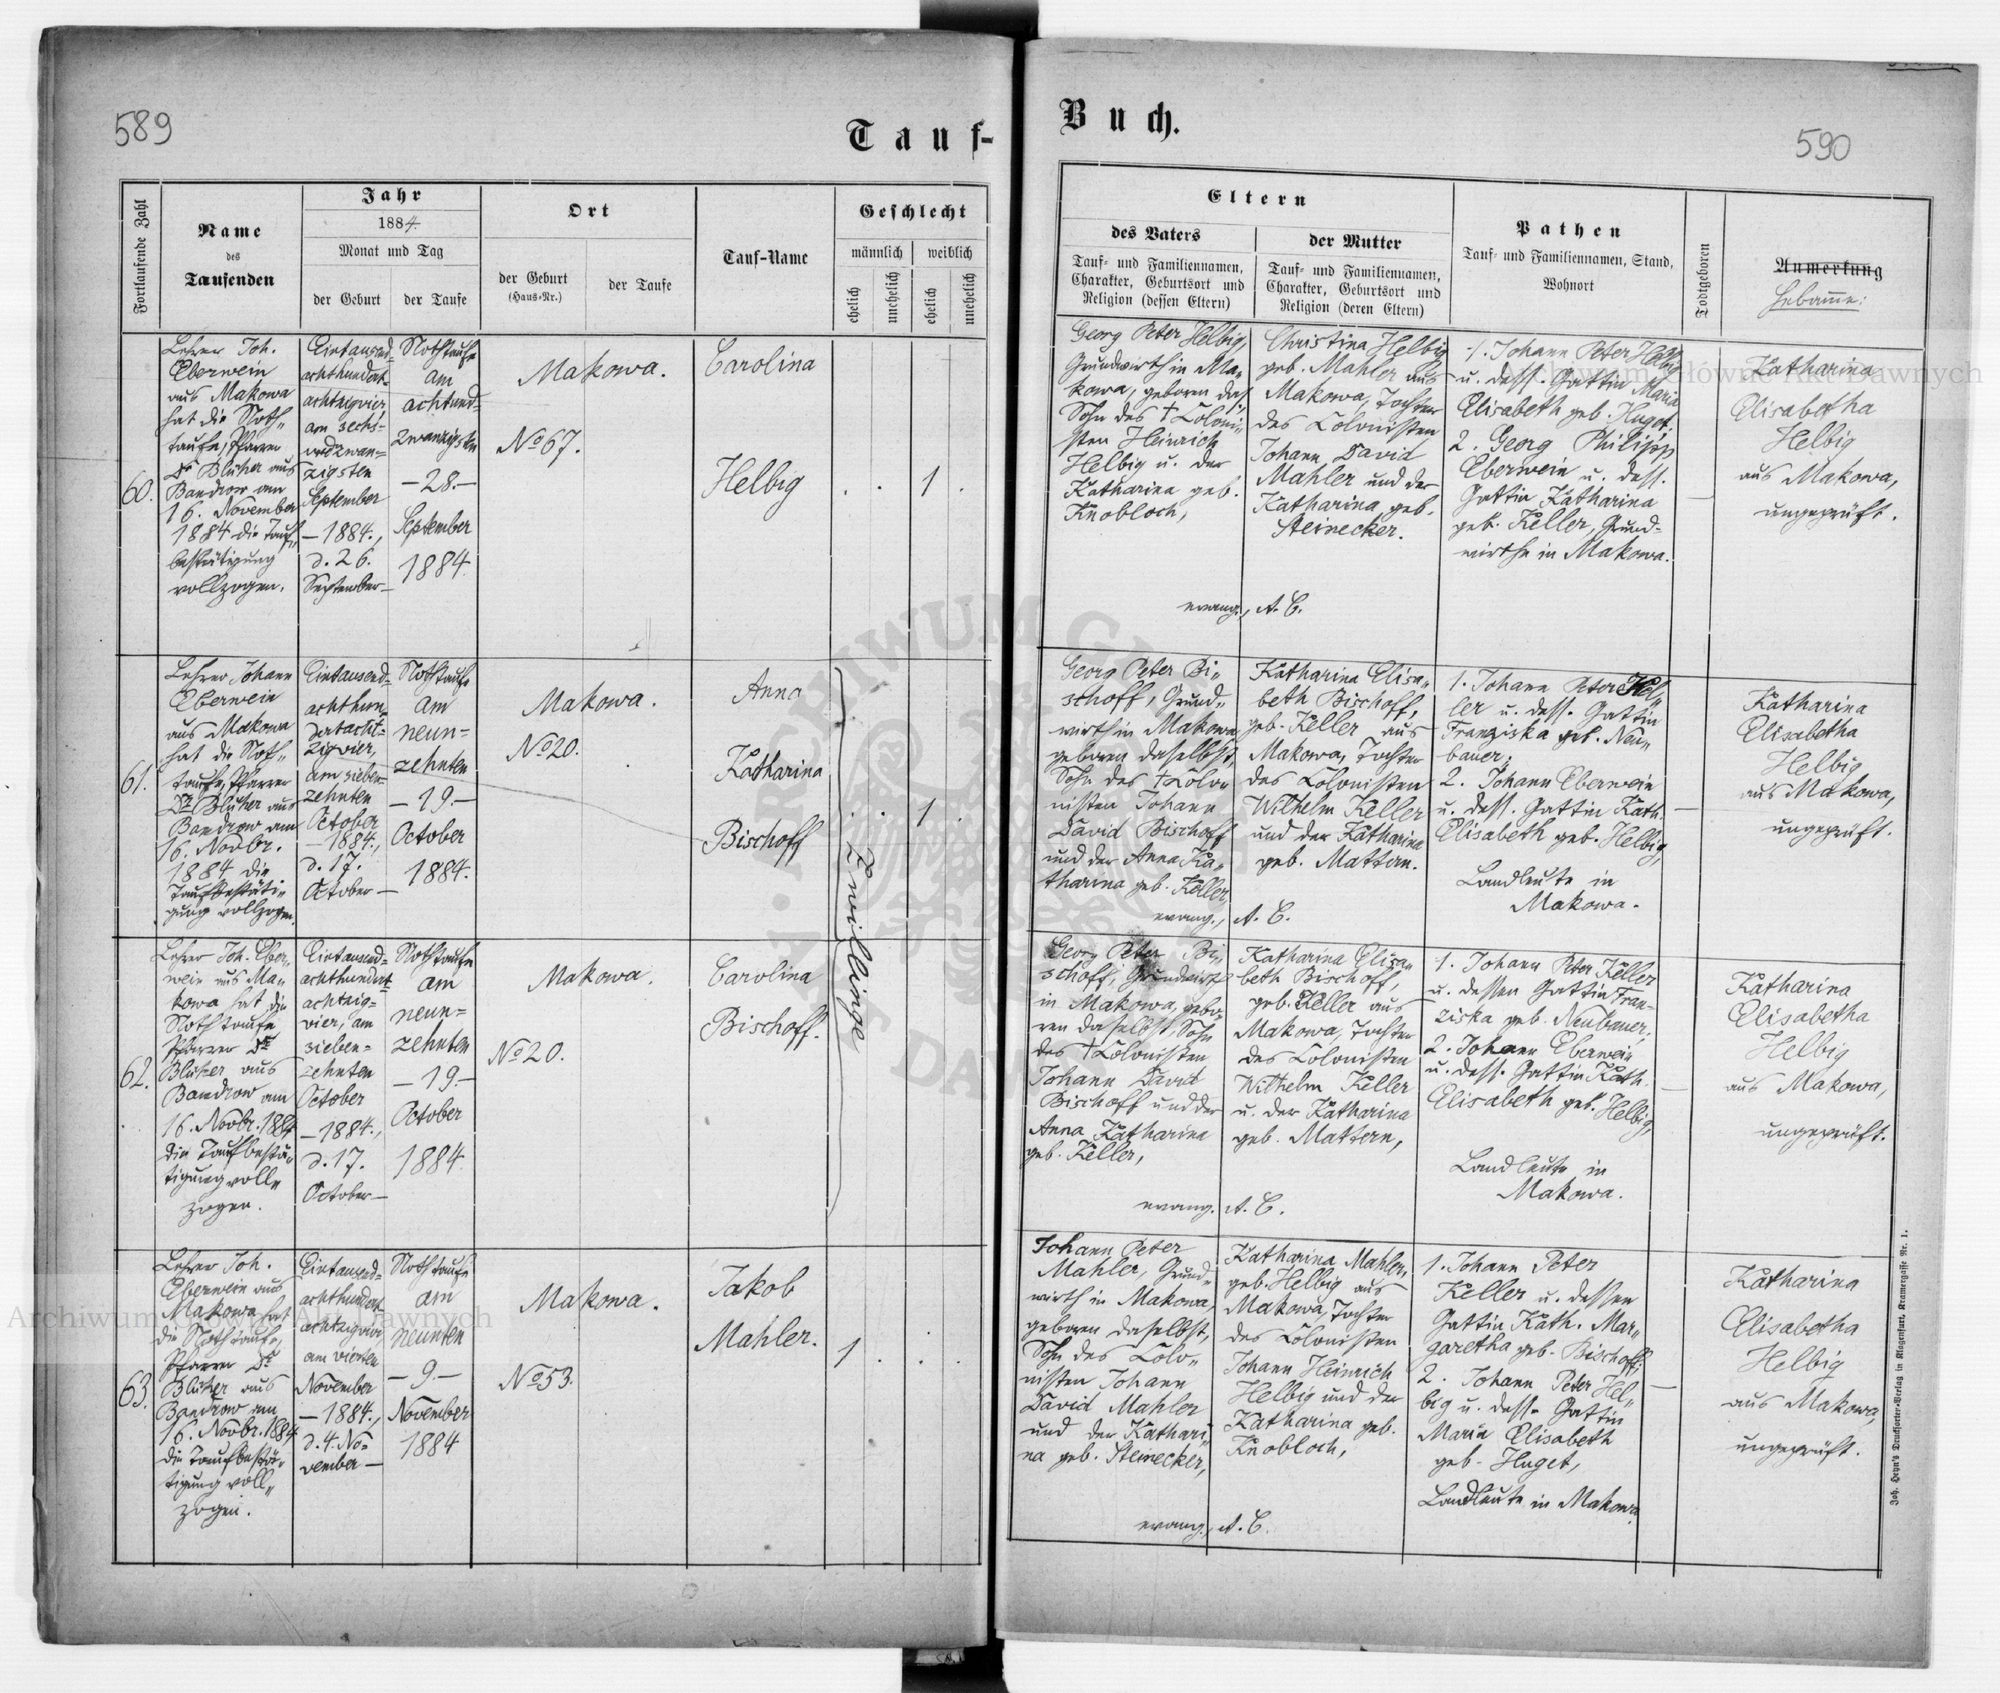 589
Tauf-
Fortlaufende Zahl
Name
des
Taufenden
Jahr
1884.
Monat und Tag
der Geburt
der Taufe
Ort
der Geburt
(Haus-Nr.)
der Taufe
Tauf-Name
Geschlecht
männlich
weiblich
ehelich
unehelich
ehelich
unehelich
60.
Lehrer Joh.
Eberwein
aus Makowa
hat die Noth-
taufe, Pfarrer
Dr Blüher aus
Bandrow am
16. November
1884 die Tauf-
bestätigung
vollzogen.
Eintausend-
achthundert-
achtzigvier,
am sechs-
undzwan-
zigsten
September
- 1884.,
d. 26.
September -
Nothtaufe
am
achtund-
zwanzigsten
- 28. -
September
1884.
Makowa.
No 67.
Carolina
Helbig
. . 1 .
61.
Lehrer Johann
Eberwein
aus Makowa
hat die Noth-
taufe, Pfarrer
Dr Blüher aus
Bandrow am
16. Novbr.
1884 die
Taufbestäti-
gung vollzogen.
Eintausend-
achthun-
dertacht-
zigvier,
am sieben-
zehnten
October
- 1884.,
d. 17.
October -
Nothtaufe
am
neun-
zehnten
- 19. -
October
1884.
Makowa.
No 20.
Anna
Katharina
Bischoff
Zwillinge
. . 1 .
62.
Lehrer Joh. Eber-
wein aus Ma-
kowa hat die
Nothtaufe
Pfarrer Dr
Blüher aus
Bandrow am
16. Novbr. 1884
die Taufbestä-
tigung voll-
zogen.
Eintausend-
achthundert
achtzig-
vier, am
sieben-
zehnten
October
- 1884.,
d. 17.
October -
Nothtaufe
am
neun-
zehnten
- 19. -
October
1884.
Makowa.
No 20.
Carolina
Bischoff.
63.
Lehrer Joh.
Eberwein aus
Makowa hat
die Nothtaufe,
Pfarrer Dr
Blüher aus
Bandrow am
16. Novbr. 1884
die Taufbestä-
tigung voll-
zogen.
Eintausend-
achthundert
achtzigvier
am vierten
November
- 1884.,
d. 4. No-
vember -
Nothtaufe
am
neunten
- 9. -
November
1884
Makowa.
No 53.
Jakob
Mahler.
1 . . .
Buch.
590
Eltern
des Vaters
Tauf- und Familiennamen,
Charakter, Geburtsort und
Religion (dessen Eltern)
der Mutter
Tauf- und Familiennamen,
Charakter, Geburtsort und
Religion (deren Eltern)
Pathen
Tauf- und Familiennamen, Stand,
Wohnort
Todtgeboren
Anmerkung
Hebamme:
Georg Peter Helbig,
Grundwirth in Ma-
kowa, geboren das.
Sohn des † Coloni-
sten Heinrich
Helbig u. der
Katharina geb.
Knobloch,
Christina Helbig
geb. Mahler aus
Makowa, Tochter
des Colonisten
Johann David
Mahler und der
Katharina geb.
Steinecker.
evang., A. C.
1. Johann Peter Helbig
u. dess. Gattin Maria
Elisabeth geb. Huget.
2. Georg Philipp
Eberwein u. dess.
Gattin Katharina
geb. Keller, Grund-
wirthe in Makowa.
Katharina
Elisabetha
Helbig
aus Makowa,
ungeprüft.
Georg Peter Bi-
schoff, Grund-
wirth in Makowa
geboren daselbst,
Sohn des † Colo-
nisten Johann
David Bischoff
und der Anna Ka-
tharina geb. Keller,
Katharina Elisa-
beth Bischoff,
geb. Keller aus
Makowa, Tochter
des Colonisten
Wilhelm Keller
und der Katharina
geb. Mattern.
evang., A. C.
1. Johann Peter Kel-
ler u. dess. Gattin
Franziska geb. Neu-
bauer;
2. Johann Eberwein
u. dess. Gattin Kath.
Elisabeth geb. Helbig,
Landleute in
Makowa.
Katharina
Elisabetha
Helbig
aus Makowa,
ungeprüft.
Georg Peter Bi-
schoff, Grundwirth
in Makowa, gebo-
ren daselbst, Sohn
des † Colonisten
Johann David
Bischoff und der
Anna Katharina
geb. Keller,
Katharina Elisa-
beth Bischoff,
geb. Keller aus
Makowa, Tochter
des Colonisten
Wilhelm Keller
u. der Katharina
geb. Mattern,
evang. A. C.
1. Johann Peter Keller
u. dessen Gattin Fran-
ziska geb. Neubauer;
2. Johann Eberwein
u. dess. Gattin Kath.
Elisabeth geb. Helbig,
Landleute in
Makowa.
Katharina
Elisabetha
Helbig
aus Makowa,
ungeprüft.
Johann Peter
Mahler, Grund-
wirth in Makowa,
geboren daselbst,
Sohn des Colo-
nisten Johann
David Mahler
und der Kathari-
na geb. Steinecker,
Katharina Mahler,
geb. Helbig aus
Makowa, Tochter
des Colonisten
Johann Heinrich
Helbig und der
Katharina geb.
Knobloch,
evang., A. C.
1. Johann Peter
Keller u. dessen
Gattin Kath. Mar-
garetha geb. Bischoff;
2. Johann Peter Hel-
big u. dess. Gattin
Maria Elisabeth
geb. Huget,
Landleute in Makowa.
Katharina
Elisabetha
Helbig
aus Makowa,
ungeprüft.
Joh. Heyn's Drucksorten-Verlag in Klagenfurt, Kramergasse Nr. 1.
Archiwum Główne Akt Dawnych
Archiwum Główne Akt Dawnych